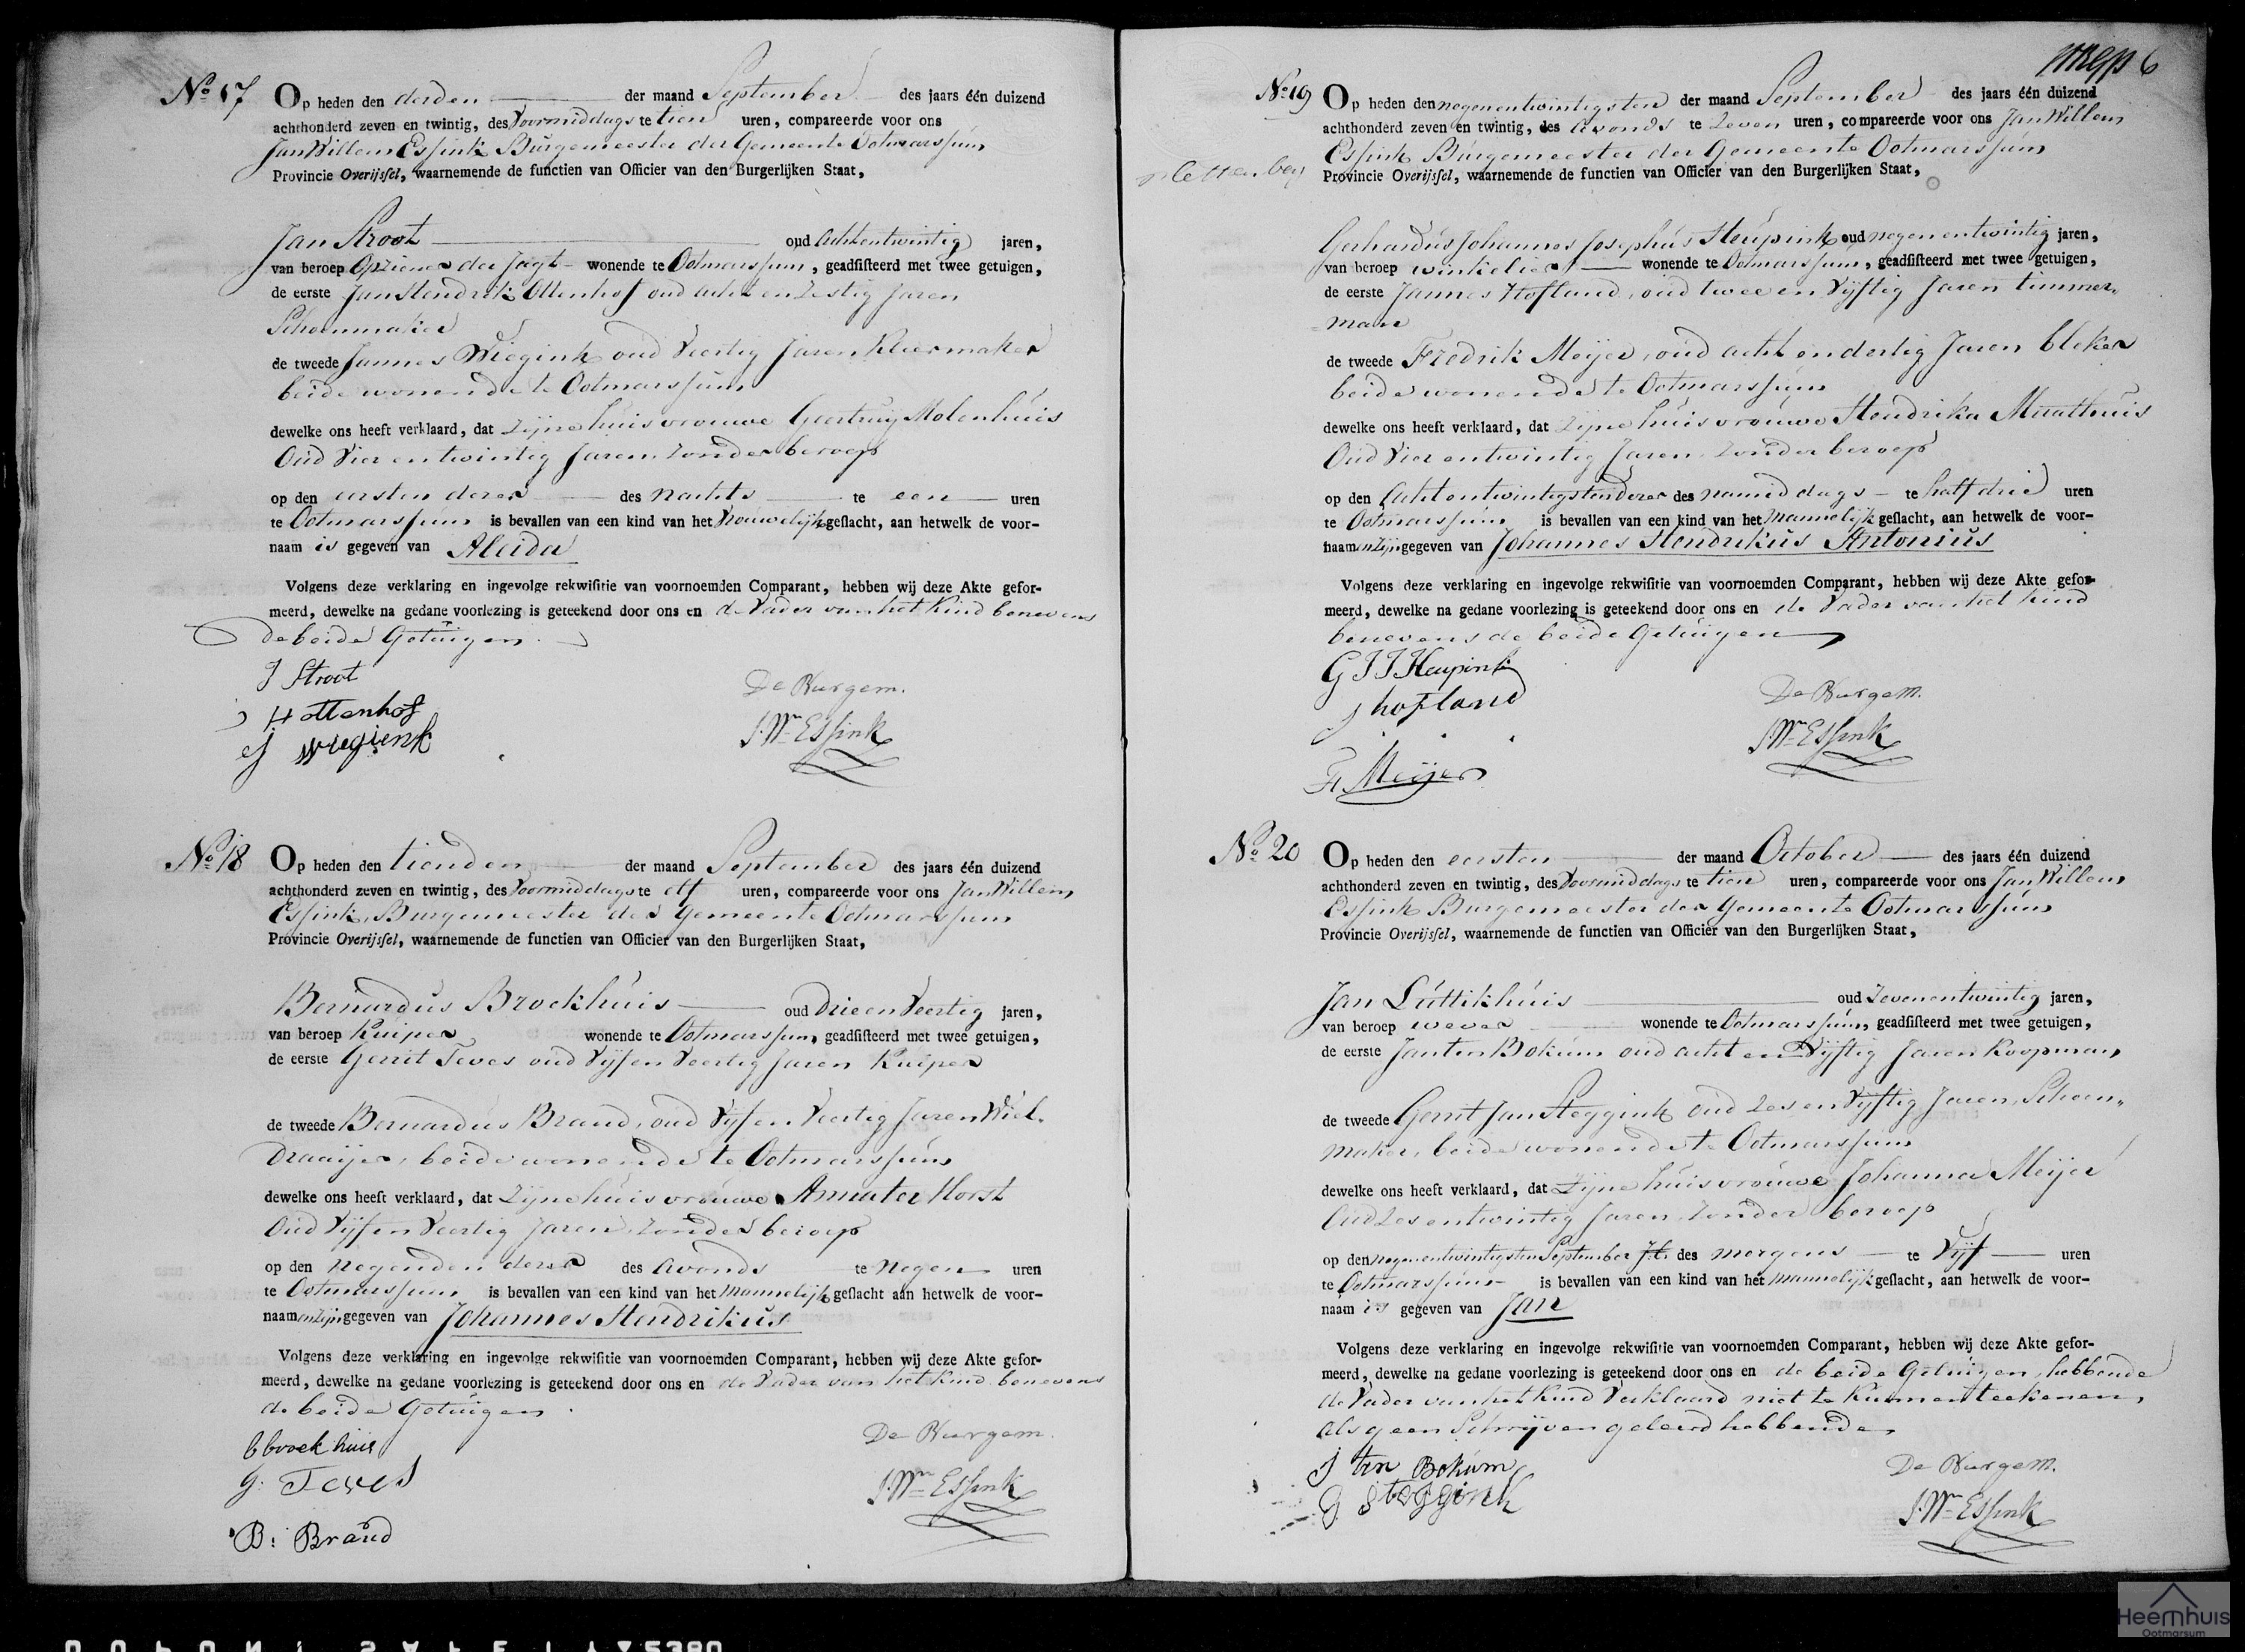 No 17 Op heden den derden der maand September des jaars één duizend
achthonderd zeven en twintig, des Voormiddags te tien uren, compareerde voor ons
Jan Willem Essink Burgemeester der Gemeente Ootmarssum
Provincie Overijssel, waarnemende de functien van Officier van den Burgerlijken Staat,
Jan Stroot oud achtentwintig jaren,
van beroep Opziener der Jagt wonende te Ootmarssum, geadsisteerd met twee getuigen,
de eerste Jan Hendrik Ottenhof oud acht en zestig Jaren
Schoenmaker
de tweede Jannes Wiegink oud Veertig Jaren Kleermaker
beide wonende te Ootmarssum
dewelke ons heeft verklaard, dat zijne huisvrouwe Geertruy Molenhuis
Oud Vier entwintig Jaren, zonder beroep
op den eersten dezer des nachts te een uren
te Ootmarssum is bevallen van een kind van het Vrouwelijk geslacht, aan hetwelk de voor-
naam is gegeven van Aleida
Volgens deze verklaring en ingevolge rekwisitie van voornoemden Comparant, hebben wij deze Akte gefor-
meerd, dewelke na gedane voorlezing is geteekend door ons en de Vader van het Kind benevens
de beide Getuigen.
J Stroot
De Burgem.
J H ottenhof
J.Wm Essink
J wiegienk
No 18 Op heden den tienden der maand September des jaars één duizend
achthonderd zeven en twintig, des Voormiddags te elf uren, compareerde voor ons Jan Willem
Essink, Burgemeester der Gemeente Ootmarssum
Provincie Overijssel, waarnemende de functien van Officier van den Burgerlijken Staat,
Bernardus Broekhuis oud drie en Veertig jaren,
van beroep Kuiper wonende te Ootmarssum, geadsisteerd met twee getuigen,
de eerste Gerrit Teves oud Vijf en Veertig Jaren Kuiper
de tweede Bernardus Brand, oud Vijf en Veertig Jaren Wiel-
draaijer, beide wonende te Ootmarssum
dewelke ons heeft verklaard, dat zijne huisvrouwe Anna ter Horst
Oud Vijf en Veertig Jaren, zonder beroep
op den negenden dezer des Avonds te negen uren
te Ootmarssum is bevallen van een kind van het Mannelijk geslacht aan hetwelk de voor-
naamen zijn gegeven van Johannes Hendrikus
Volgens deze verklaring en ingevolge rekwisitie van voornoemden Comparant, hebben wij deze Akte gefor-
meerd, dewelke na gedane voorlezing is geteekend door ons en de Vader van het Kind benevens
de beide Getuigen.
b broekhuis
De Burgem.
G. Teves
J.Wm Essink
B: Brand
6
No 19 Op heden den negenentwintigsten der maand September des jaars één duizend
achthonderd zeven en twintig, des Avonds te Zeven uren, compareerde voor ons Jan Willem
Essink Burgemeester der Gemeente Ootmarssum
Provincie Overijssel, waarnemende de functien van Officier van den Burgerlijken Staat,
Gerhardus Johannes Josephus Heupink oud negen entwintig jaren,
van beroep winkelier wonende te Ootmarssum, geadsisteerd met twee getuigen,
de eerste Jannes Hofland, oud twee en Vijftig Jaren timmer-
man
de tweede Fredrik Meijer, oud acht en dertig Jaren bleker
beide wonende te Ootmarssum
dewelke ons heeft verklaard, dat zijne huisvrouwe Hendrika Maathuis
Oud Vier entwintig Jaren, zonder beroep
op den Achtentwintigsten dezer des namiddags te half drie uren
te Ootmarssum is bevallen van een kind van het Mannelijk geslacht, aan hetwelk de voor-
naamen zijn gegeven van Johannes Hendrikus Antonius
Volgens deze verklaring en ingevolge rekwisitie van voornoemden Comparant, hebben wij deze Akte gefor-
meerd, dewelke na gedane voorlezing is geteekend door ons en de Vader van het Kind
benevens de beide Getuigen
G J J Heupink
De Burgem.
J hofland
J.Wm Essink
F. Meijer
No 20 Op heden den eersten der maand October des jaars één duizend
achthonderd zeven en twintig, des Voormiddags te tien uren, compareerde voor ons Jan Willem
Essink Burgemeester der Gemeente Ootmarssum
Provincie Overijssel, waarnemende de functien van Officier van den Burgerlijken Staat,
Jan Luttikhuis oud Zevenentwintig jaren,
van beroep wever wonende te Ootmarssum, geadsisteerd met twee getuigen,
de eerste Jan ten Bokum oud acht en Vijftig Jaren Koopman
de tweede Gerrit Jan Steggink oud Zes en Vijftig Jaren, Schoen-
maker, beide wonende te Ootmarssum
dewelke ons heeft verklaard, dat zijne huisvrouwe Johanna Meijer
Oud Zes entwintig Jaren, zonder beroep
op den negenentwintigsten September j.l. des morgens te Vijf uren
te Ootmarssum is bevallen van een kind van het Mannelijk geslacht, aan hetwelk de voor-
naam is gegeven van Jan
Volgens deze verklaring en ingevolge rekwisitie van voornoemden Comparant, hebben wij deze Akte gefor-
meerd, dewelke na gedane voorlezing is geteekend door ons en de beide Getuigen, hebbende
de Vader van het Kind Verklaard niet te kunnen teekenen,
als geen Schrijven geleerd hebbende
J ten Bokum
De Burgem.
G steggink
J.Wm Essink
Heemhuis
Ootmarsum